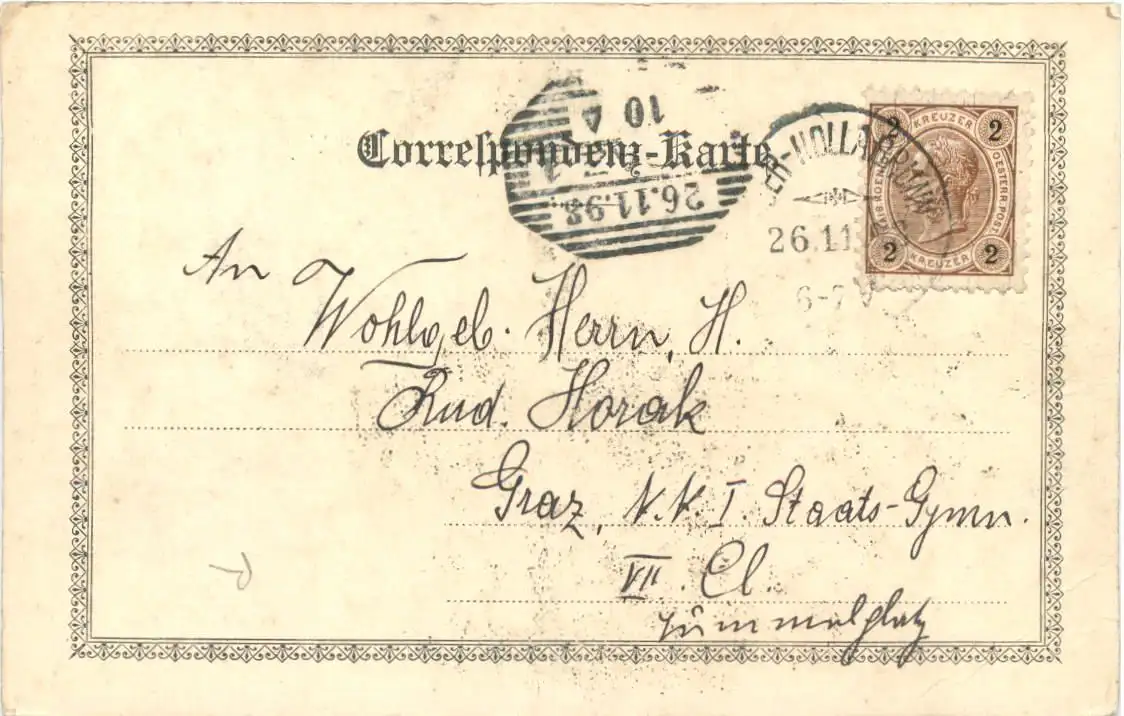 Correspondenz-Karte
10
26.11.98
ER-HOLLABRUNN
26.11
6-7
2 KREUZER 2
OESTERR. POST
2 KREUZER 2
An
Wohlgeb. Herrn, H.
Rud. Horak
Graz, K.K. I. Staats-Gymn.
VII. Cl.